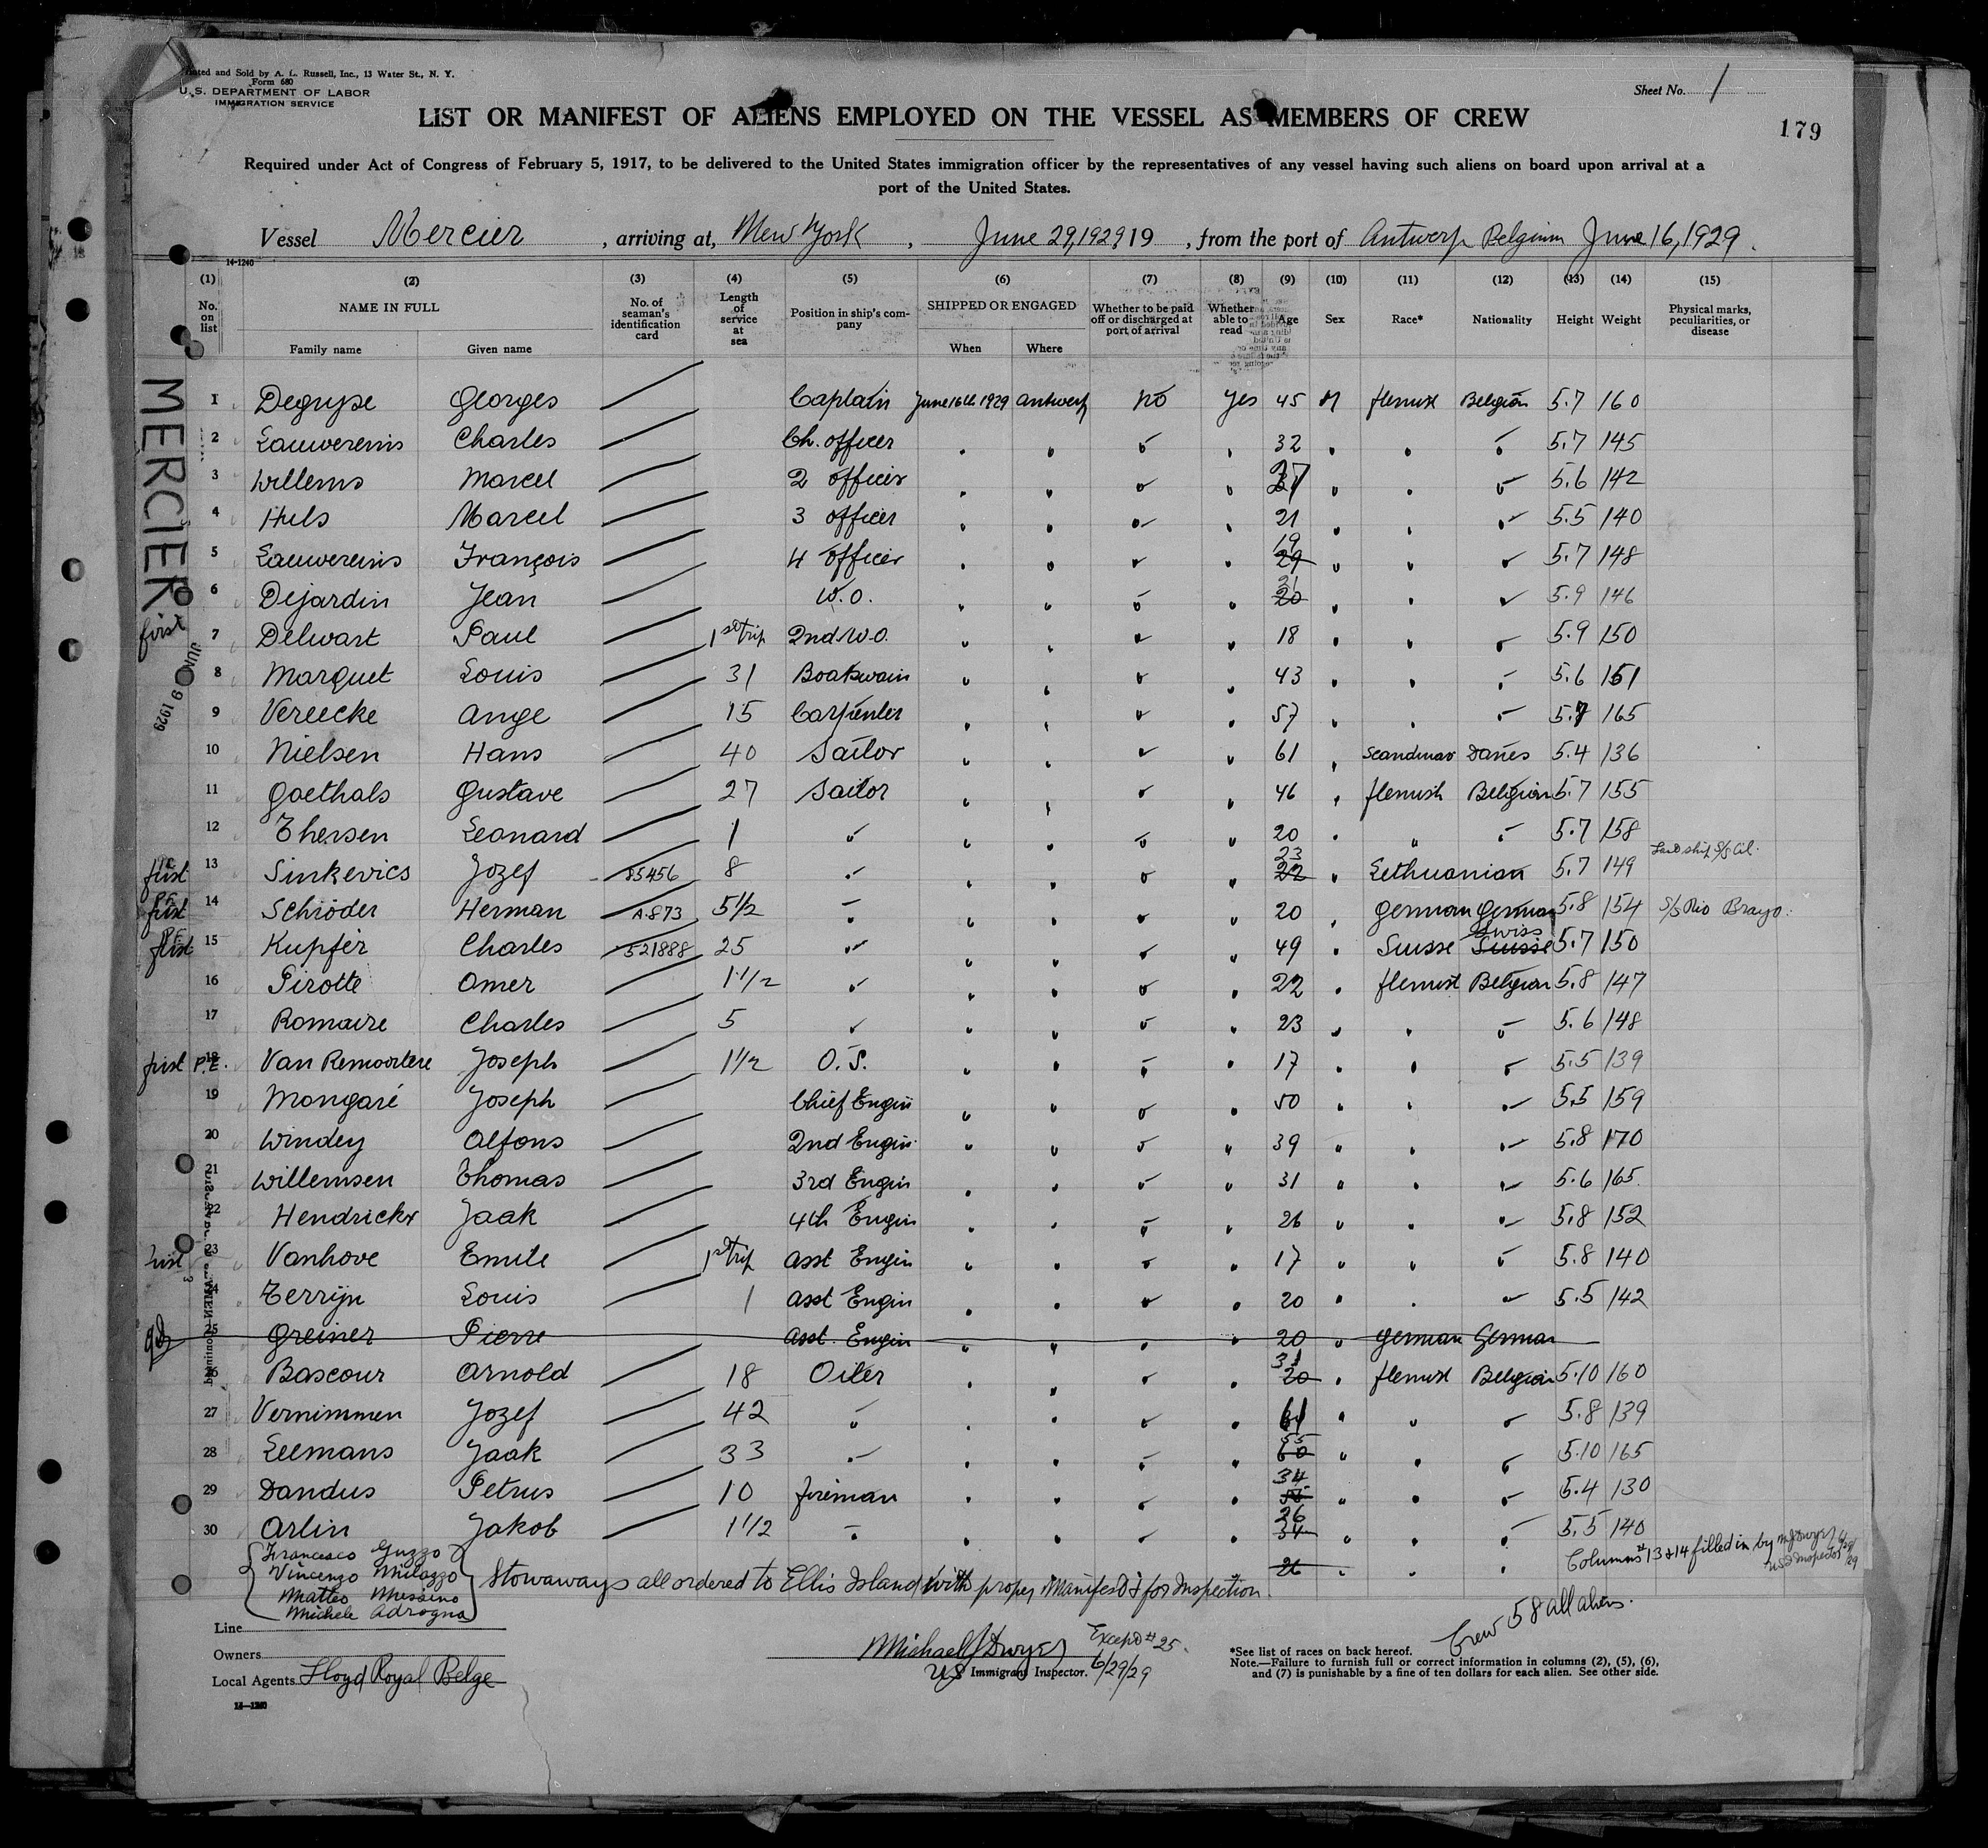 Printed and Sold by A. L. Russell, Inc., 13 Water St., N. Y.
Form 680
U.S. DEPARTMENT OF LABOR
IMMIGRATION SERVICE
Sheet No. 1
179
LIST OR MANIFEST OF ALIENS EMPLOYED ON THE VESSEL AS MEMBERS OF CREW
Required under Act of Congress of February 5, 1917, to be delivered to the United States immigration officer by the representatives of any vessel having such aliens on board upon arrival at a
port of the United States.
Vessel Mercier, arriving at, New York, June 29, 1929 19, from the port of Antwerp Belgium June 16, 1929.
14-1240
(1) (2) (3) (4) (5) (6) (7) (8) (9) (10) (11) (12) (13) (14) (15)
No. on list NAME IN FULL No. of seaman's identification card Length of service at sea Position in ship's company SHIPPED OR ENGAGED Whether to be paid off or discharged at port of arrival Whether able to read Age Sex Race* Nationality Height Weight Physical marks, peculiarities, or disease
Family name Given name When Where
MERCIER.
1 Degryse Georges Captain June 16th 1929 Antwerp no yes 45 M flemish Belgian 5.7 160
2 Lauwereins Charles Ch. officer 32 5.7 145
3 Willems Marcel 2 officer 27 5.6 142
4 Huls Marcel 3 officer 21 5.5 140
5 Lauwereins François 4 officer 19 29 5.7 148
6 Dejardin Jean W.O. 31 20 5.9 146
first 7 Delwart Paul 1st trip 2nd W.O. 18 5.9 150
8 Marquet Louis 31 Boatswain 43 5.6 151
9 Vereecke Ange 15 Carpenter 57 5.7 165
10 Nielsen Hans 40 Sailor 61 Scandinav Danes 5.4 136
11 Goethals Gustave 27 Sailor 46 flemish Belgian 5.7 155
12 Thersen Leonard 1 20 5.7 158
first 13 Sinkevics Jozef 85456 8 23 22 Lethuanian 5.7 149
first 14 Schröder Herman A.873 5 1/2 20 German German 5.8 154 S/S Rio Bravo.
first 15 Kupfer Charles 521888 25 49 Suisse Swiss Suisse 5.7 150
16 Pirotte Omer 1 1/2 22 flemish Belgian 5.8 147
17 Romaire Charles 5 23 5.6 148
first P.E. 18 Van Remoortere Joseph 1 1/2 O.S. 17 5.5 139
19 Mongaré Joseph Chief Engin 50 5.5 159
20 Windey Alfons 2nd Engin. 39 5.8 170
21 Willemsen Thomas 3rd Engin 31 5.6 165.
22 Hendrickx Jaak 4th Engin 26 5.8 152
first 23 Vanhove Emile 1st trip asst Engin 17 5.8 140
24 Terrijn Louis 1 asst Engin 20 5.5 142
25 Greiner Pierre asst. Engin 20 German German
26 Bascour Arnold 18 Oiler 31 20 flemish Belgian 5.10 160
27 Vernimmen Jozef 42 61 5.8 139
28 Leemans Jaak 33 55 60 5.10 165
29 Dandus Petrus 10 fireman 34 55 5.4 130
30 Arlin Jakob 1 1/2 26 34 5.5 140
26
Columns # 13 & 14 filled in by M J Dwyer US Inspector 6/29/29
Francesco Guzzo
Vincenzo Milazzo
Matteo Messino
Michele Adrogna
Stowaways all ordered to Ellis Island with proper Manifest & for Inspection.
Crew 58 all aliens.
Line
Owners
Local Agents Lloyd Royal Belge
14-1240
Michael J Dwyer Except # 25.
US Immigrant Inspector. 6/29/29
*See list of races on back hereof.
Note.—Failure to furnish full or correct information in columns (2), (5), (6),
and (7) is punishable by a fine of ten dollars for each alien. See other side.